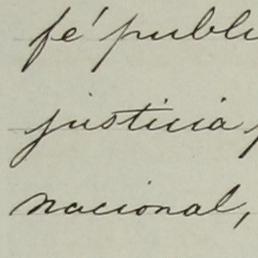 fé publi
justicia,
nacional,